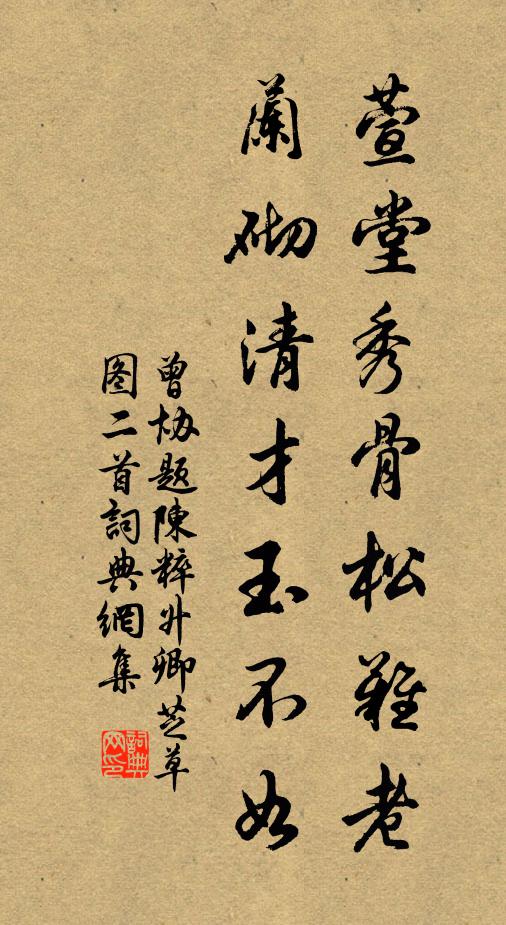 萱堂秀骨松難老
蘭砌清才玉不如
曾协题陳粹廾卿芝草
图二首詞典網集
詞典网印